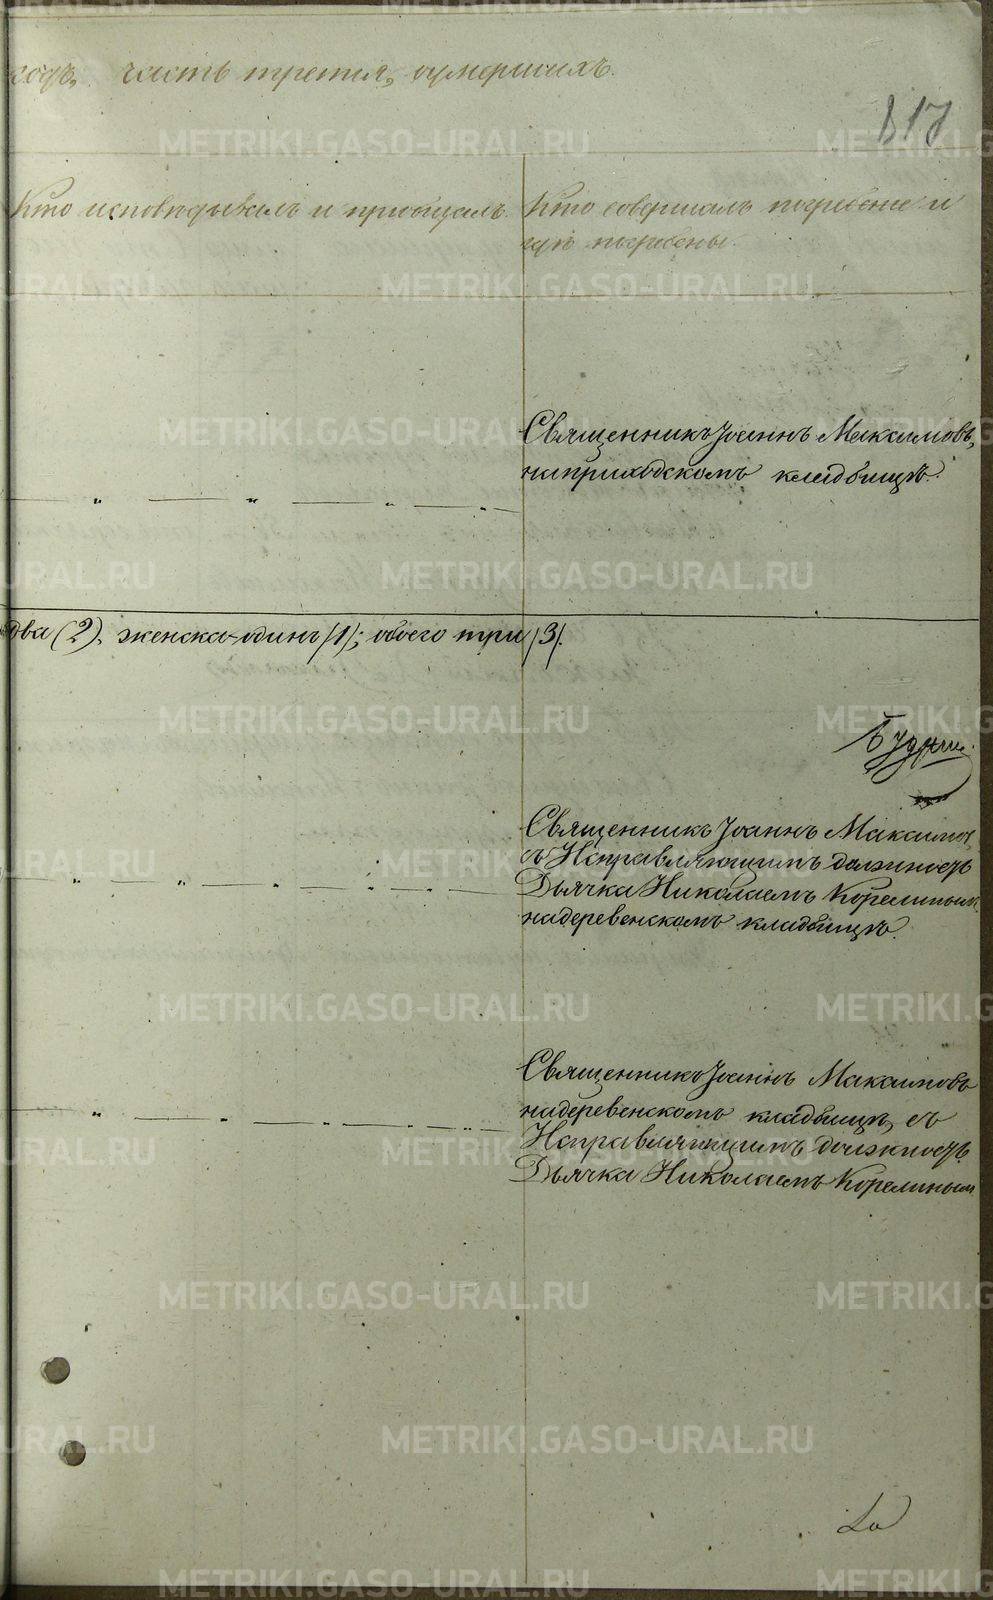 годъ, часть третия, о умершихъ.
117
Кто исповѣдывалъ и приобщалъ.
Кто совершалъ погребение и
гдѣ погребены.
Священникъ Іоаннъ Максимовъ,
на приходскомъ кладбищѣ.
два (2), женска-одинъ (1); обоего три (3).
Священникъ Іоаннъ Максимов
съ Исправляющимъ должность
Дьячка Николаемъ Корелиным
на деревенскомъ кладбищѣ.
Священникъ Іоаннъ Максимовъ
на деревенскомъ кладбищѣ, съ
Исправляющимъ должность
Дьячка Николаемъ Корелиным
METRIKI.GASO-URAL.RU